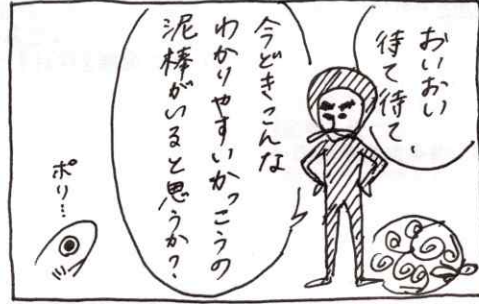 おいおい
待て待て、
今どきこんな
わかりやすいかっこうの
泥棒がいると思うか？
ポリ…